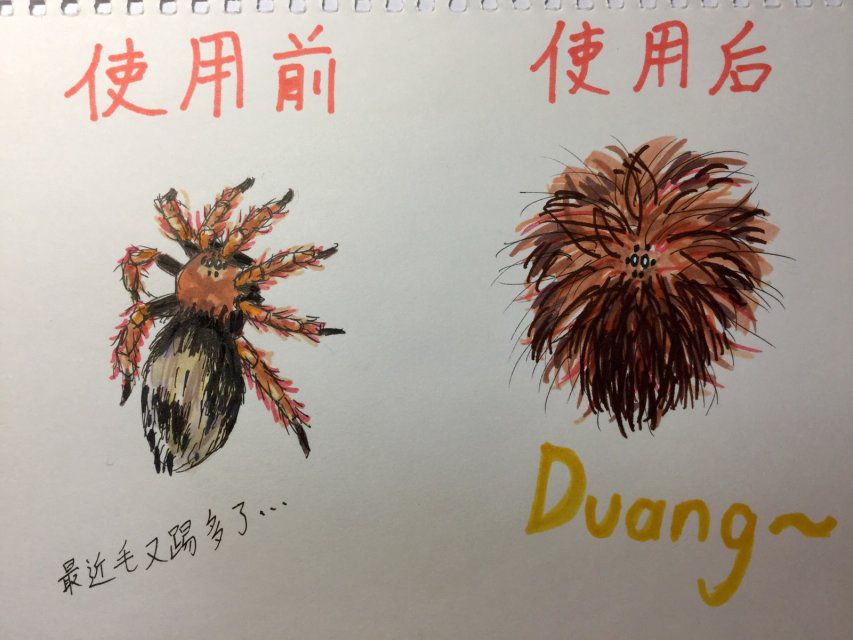 使用前
使用后
最近毛又踢多了...
Duang~